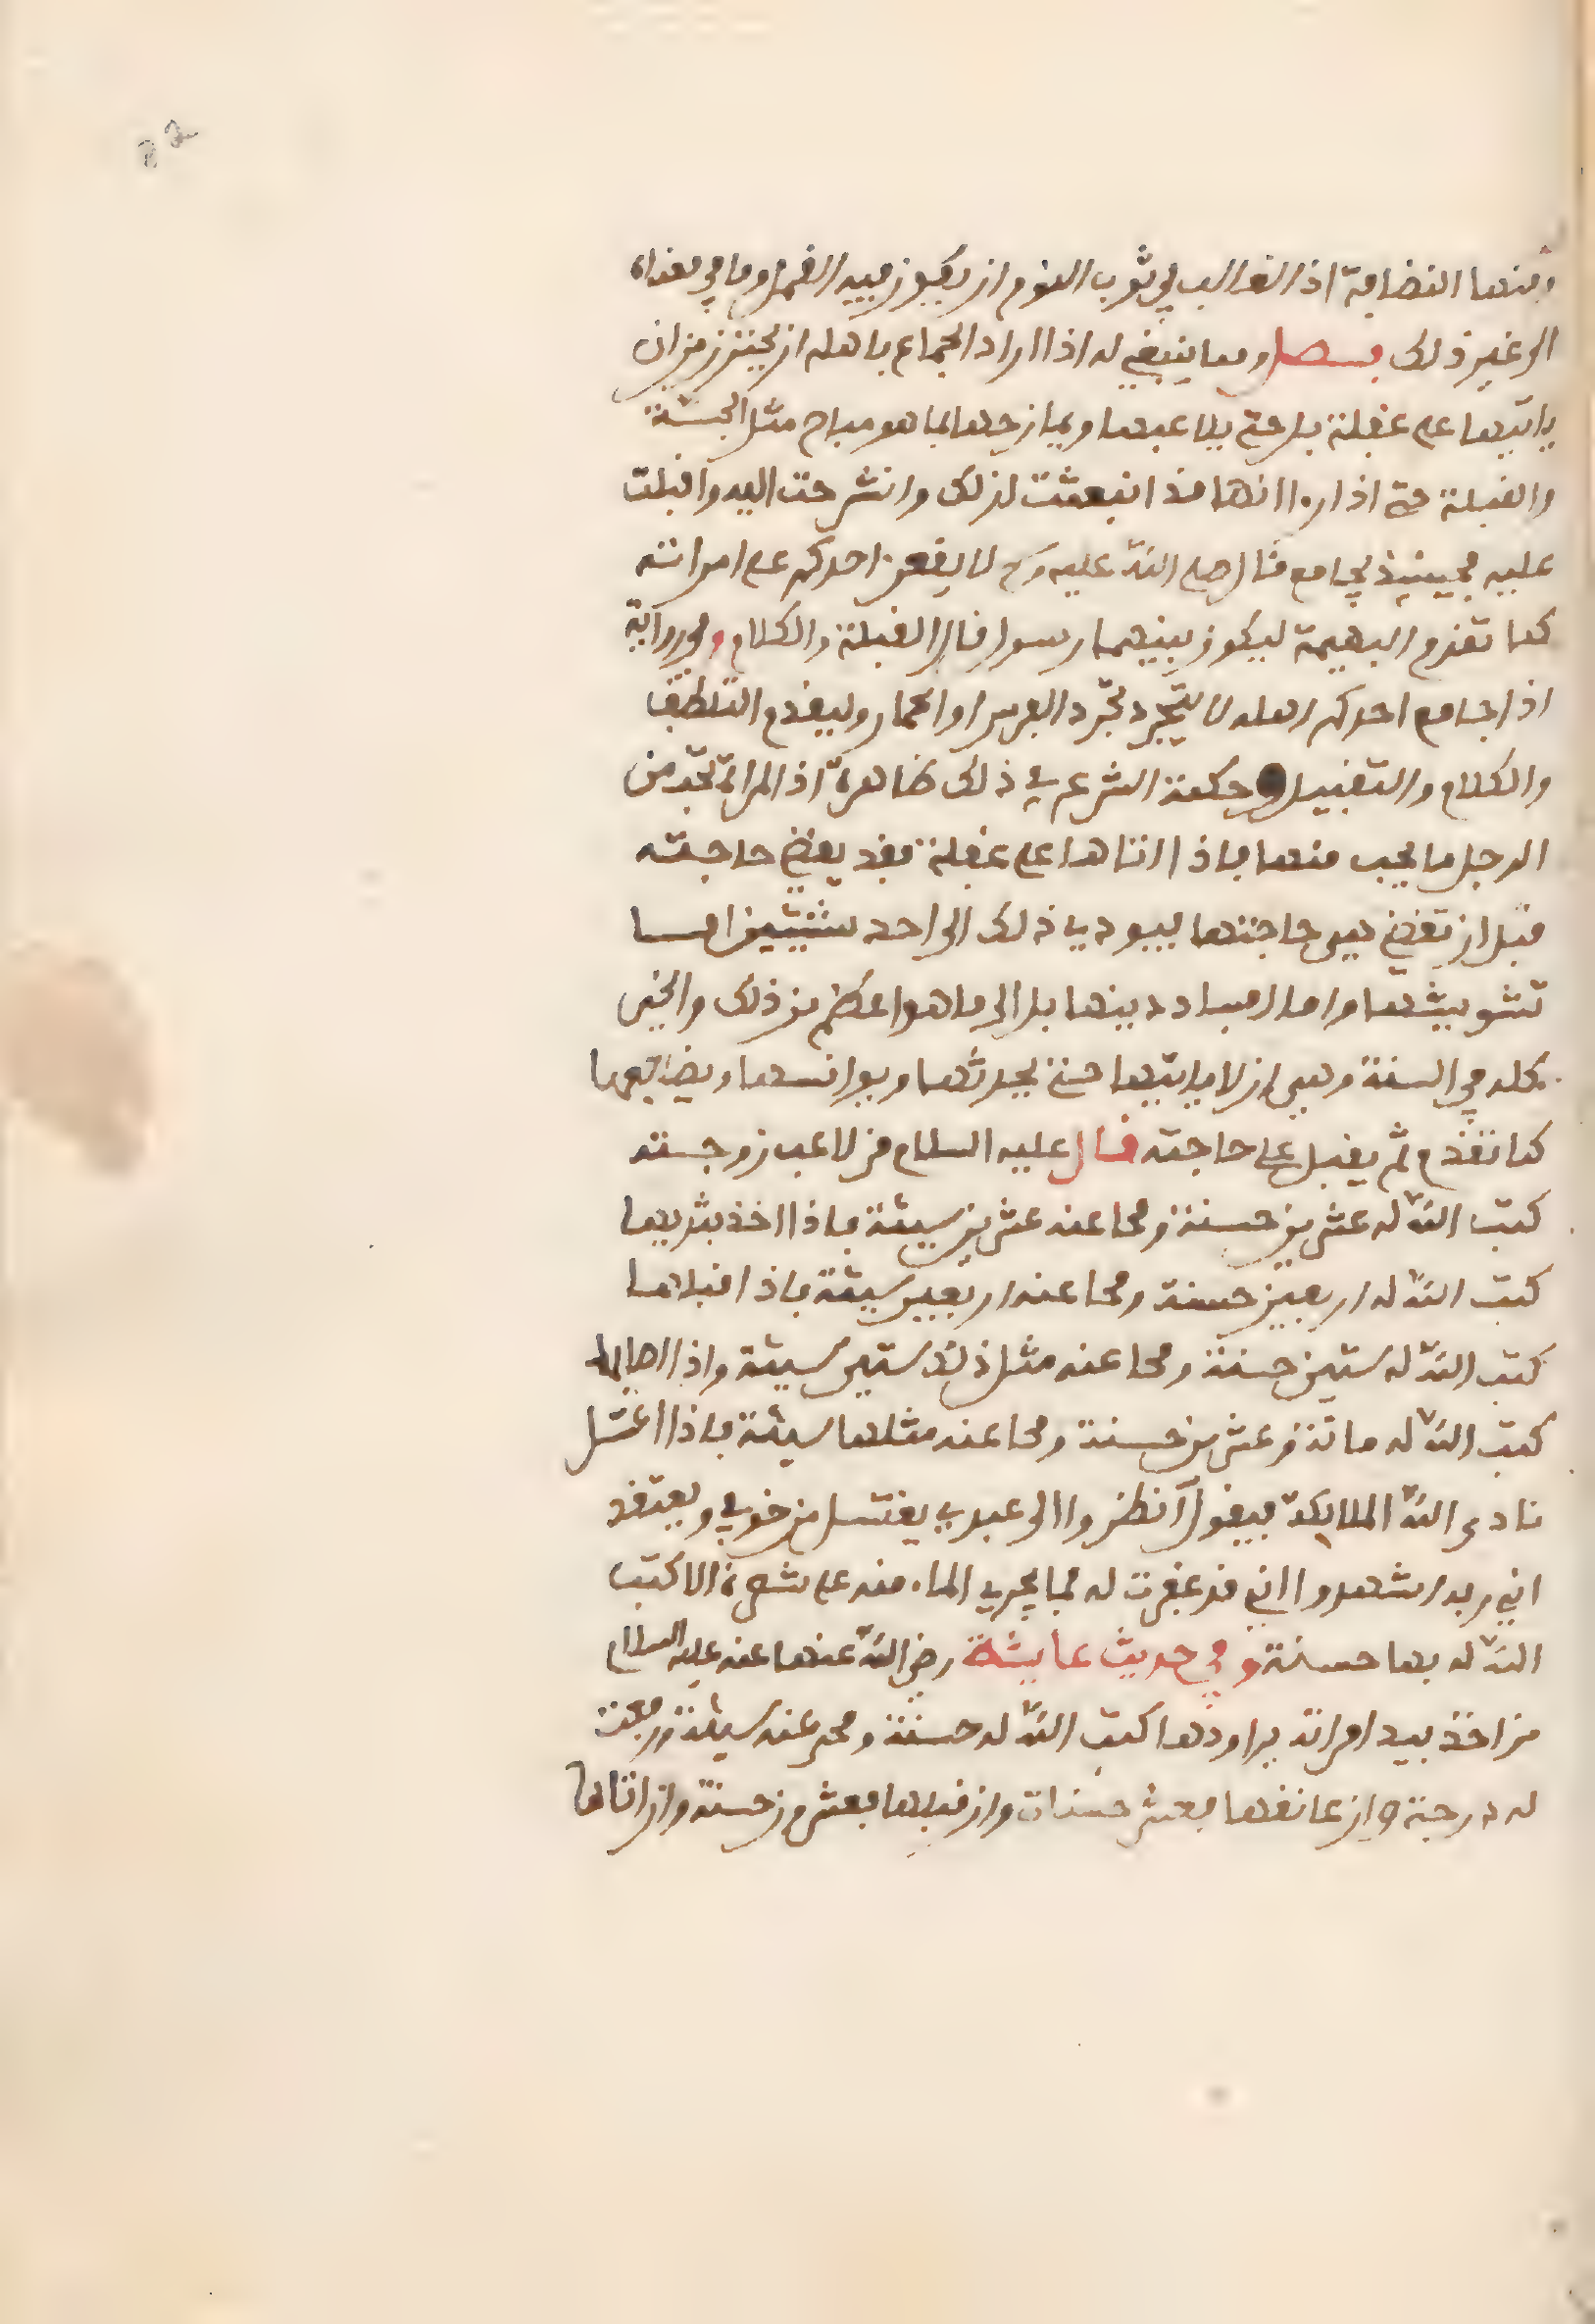 ومنها النضافة اذ الغالب في ثوب النوم ان يكون فيه القمل وما في معناه
الى غير ذلك فصل ومما ينبغي له اذا اراد الجماع باهله ان يحترز من ان
ياتيها على غفلة بل حتى يلاعبها ويمازحها بما هو مباح مثل الجسة
والقبلة حتى اذا راا انها قد انبعثت لذلك وانشرحت اليه واقبلت
عليه فحينيذ يجامع قال صلى الله عليه وسلم لا يقعن احدكم على امراته
كما تقع البهيمة ليكون بينهما رسول قال القبلة والكلام وفي رواية
اذا جامع احدكم اهله لا يتجرد تجرد العير او الحمار وليقدم التلطف
والكلام والتقبيل وحكمة الشرع في ذلك ظاهرة اذ المراة تحب من
الرجل ما يحب منها فاذا اتاها على غفلة فقد يقضي حاجته
قبل ان تقضي هي حاجتها فيودي ذلك الى احد شيئين اما
تشويشها واما فساد دينها بل الى ما هو اعظم من ذلك والخير
كله في السنة وهي ان لا ياتيها حتى يحدثها ويوانسها ويضاجعها
كما تقدم ثم يقبل على حاجته قال عليه السلام من لاعب زوجته
كتب الله له عشرين حسنة ومحا عنه عشرين سيئة فاذا اخذ بيديها
كتب الله له اربعين حسنة ومحا عنه اربعين سيئة فاذا قبلها
كتب الله له ستين حسنة ومحا عنه مثل ذلك ستين سيئة واذا اصابها
كتب الله له مائة وعشرين حسنة ومحا عنه مثلها سيئة فاذا اغتسل
نادى الله الملايكة فيقول انظروا الى عبدي يغتسل من خوفي ويعتقد
اني ربه اشهدوا اني قد غفرت له فما يجري الماء منه على شعرة الا كتب
الله له بها حسنة وفي حديث عايشة رضي الله عنها عنه عليه السلام
من اخذ بيد امراته يراودها كتب الله له حسنة ومحى عنه سيئة ورفعت
له درجة وان عانقها فعشر حسنات وان قبلها فعشرون حسنة وان اتاها